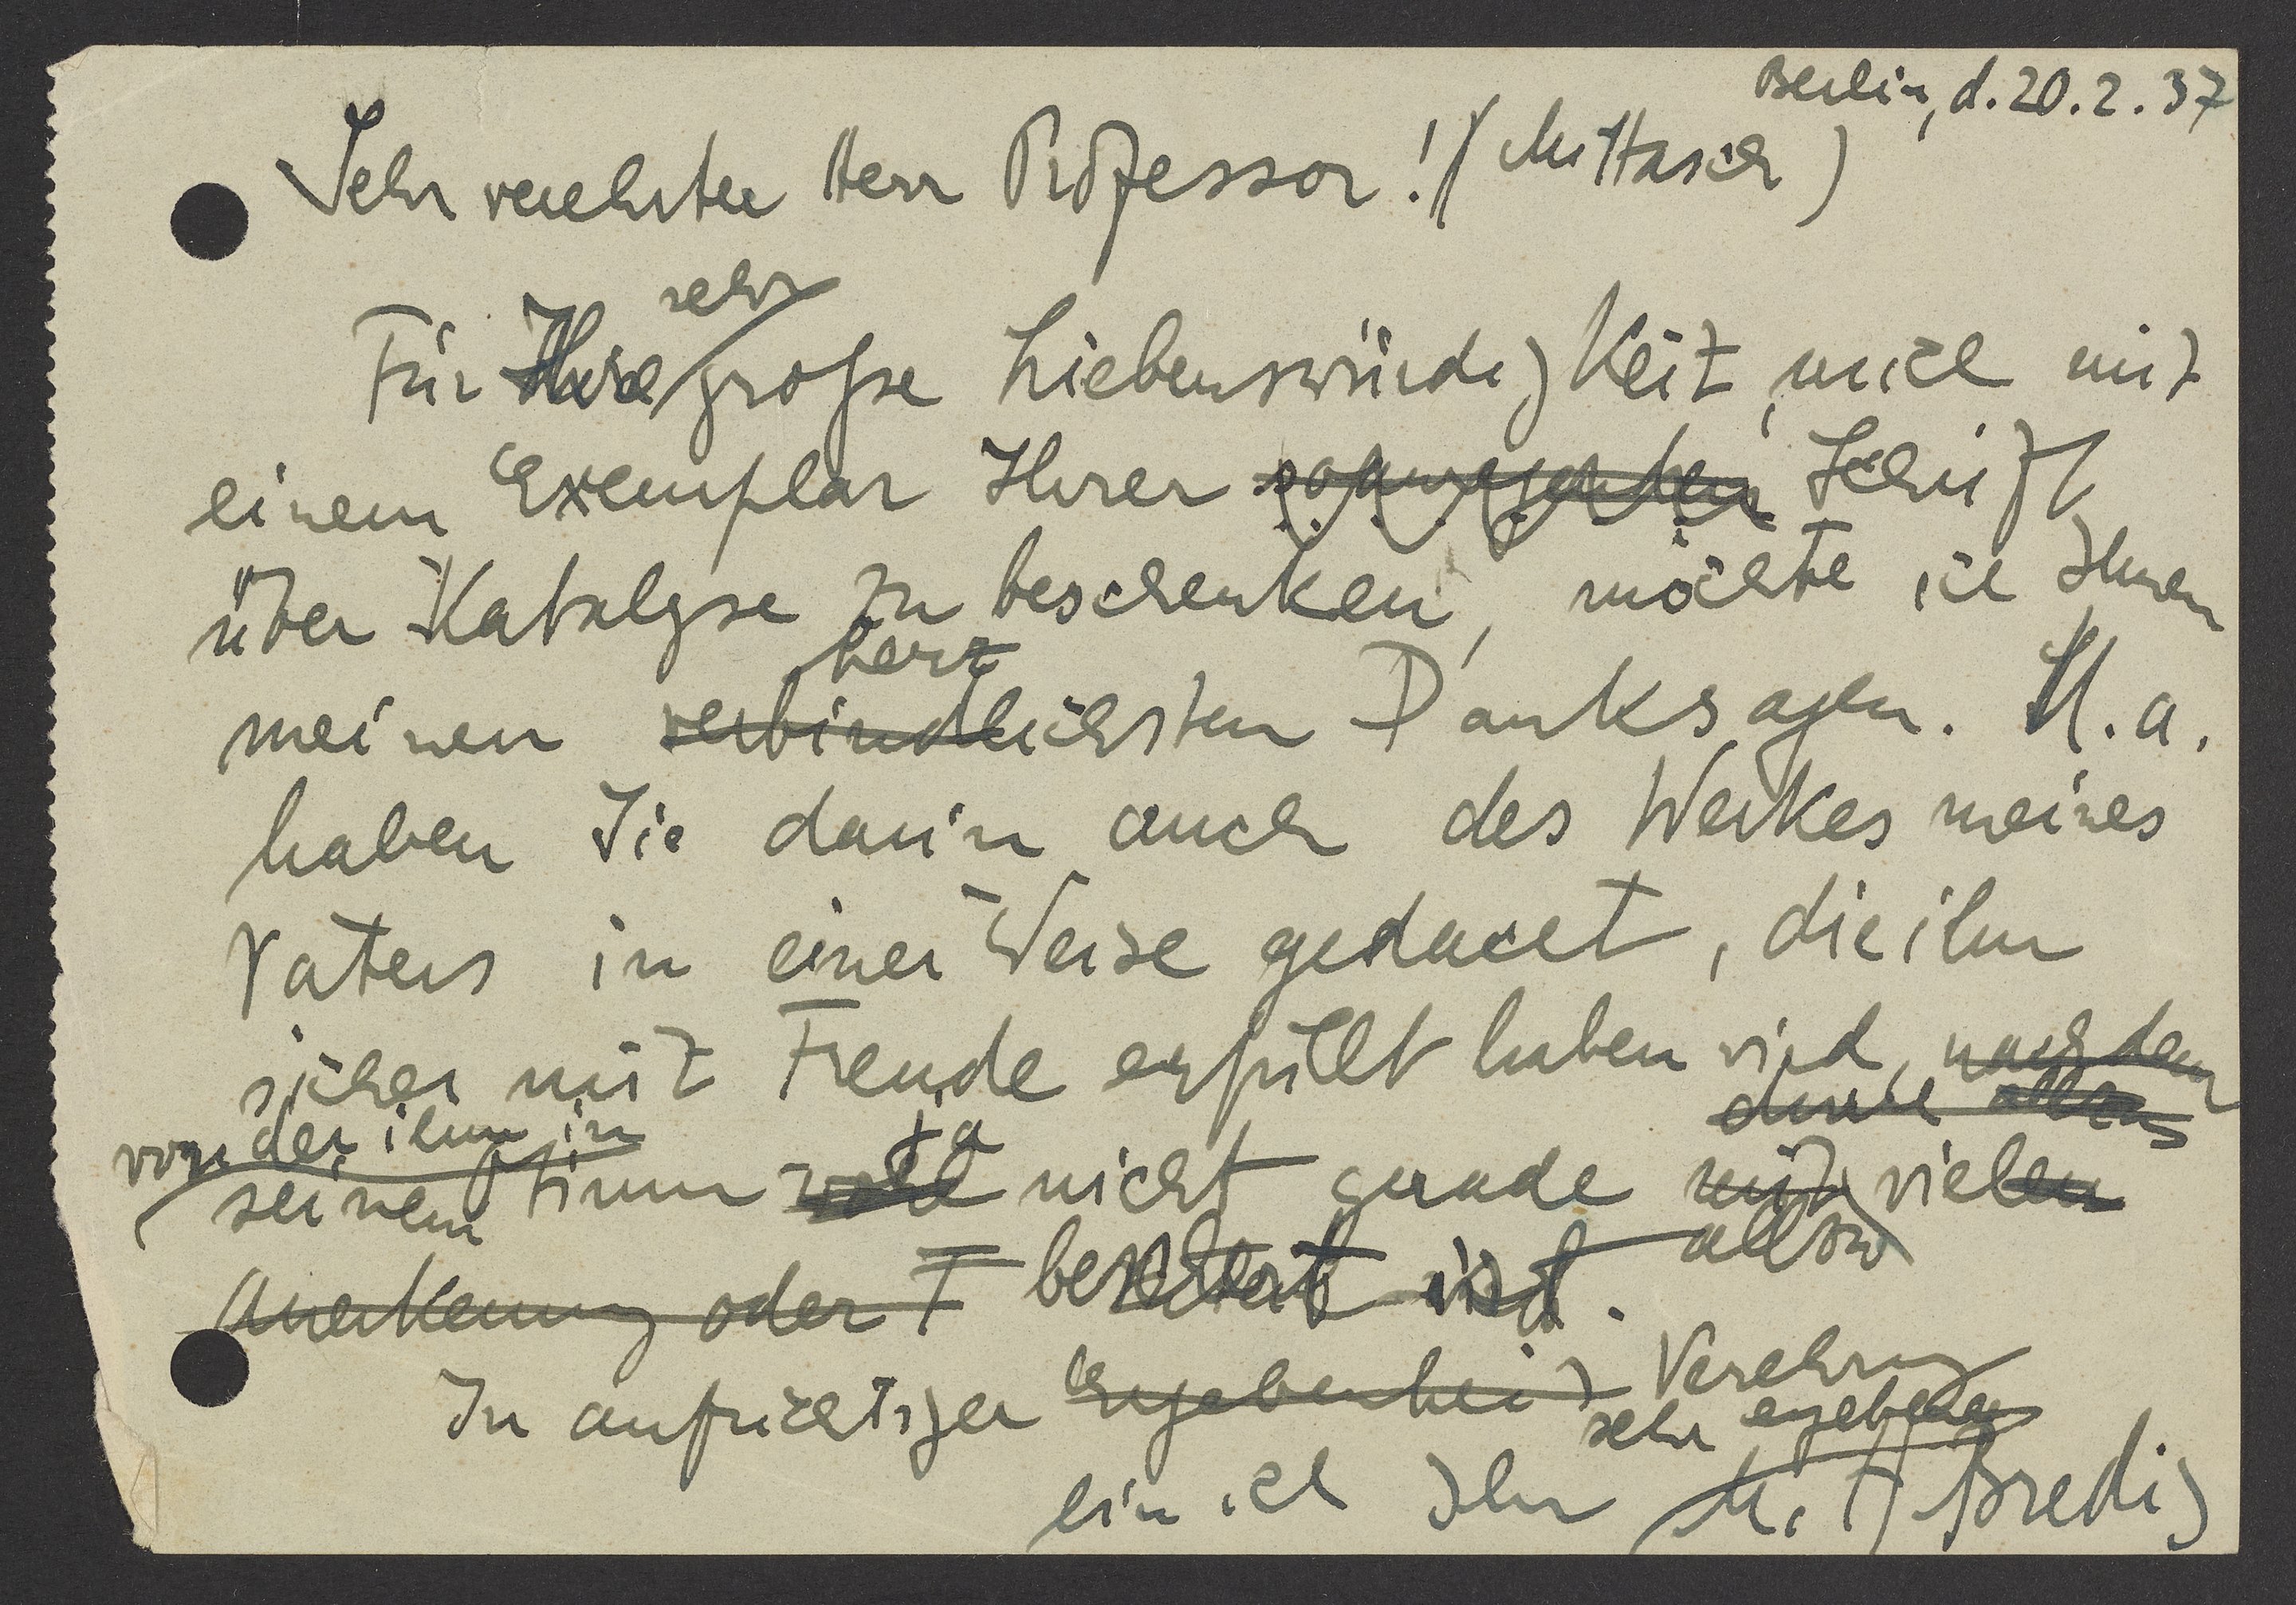 Berlin, d. 20.2.37
Sehr verehrter Herr Professor! (Mittasch)
Für Ihre sehr große Liebenswürdigkeit, mich mit
einem Exemplar Ihrer Schrift
über Katalyse zu beschenken, möchte ich Ihnen
herz
meinen verbindlichsten Dank sagen. U.a.
haben Sie darin auch des Werkes meines
Vaters in einer Weise gedacht, die ihn
sicher mit Freude erfüllt haben wird, nachdem
von der ihm in
durch
seinem ja nicht gerade mit vielen
allzu
Anerkennung oder F
ist.
In aufrichtiger Ergebenheit Verehrung
sehr ergebener
bin ich Ihr M. A. Bredig